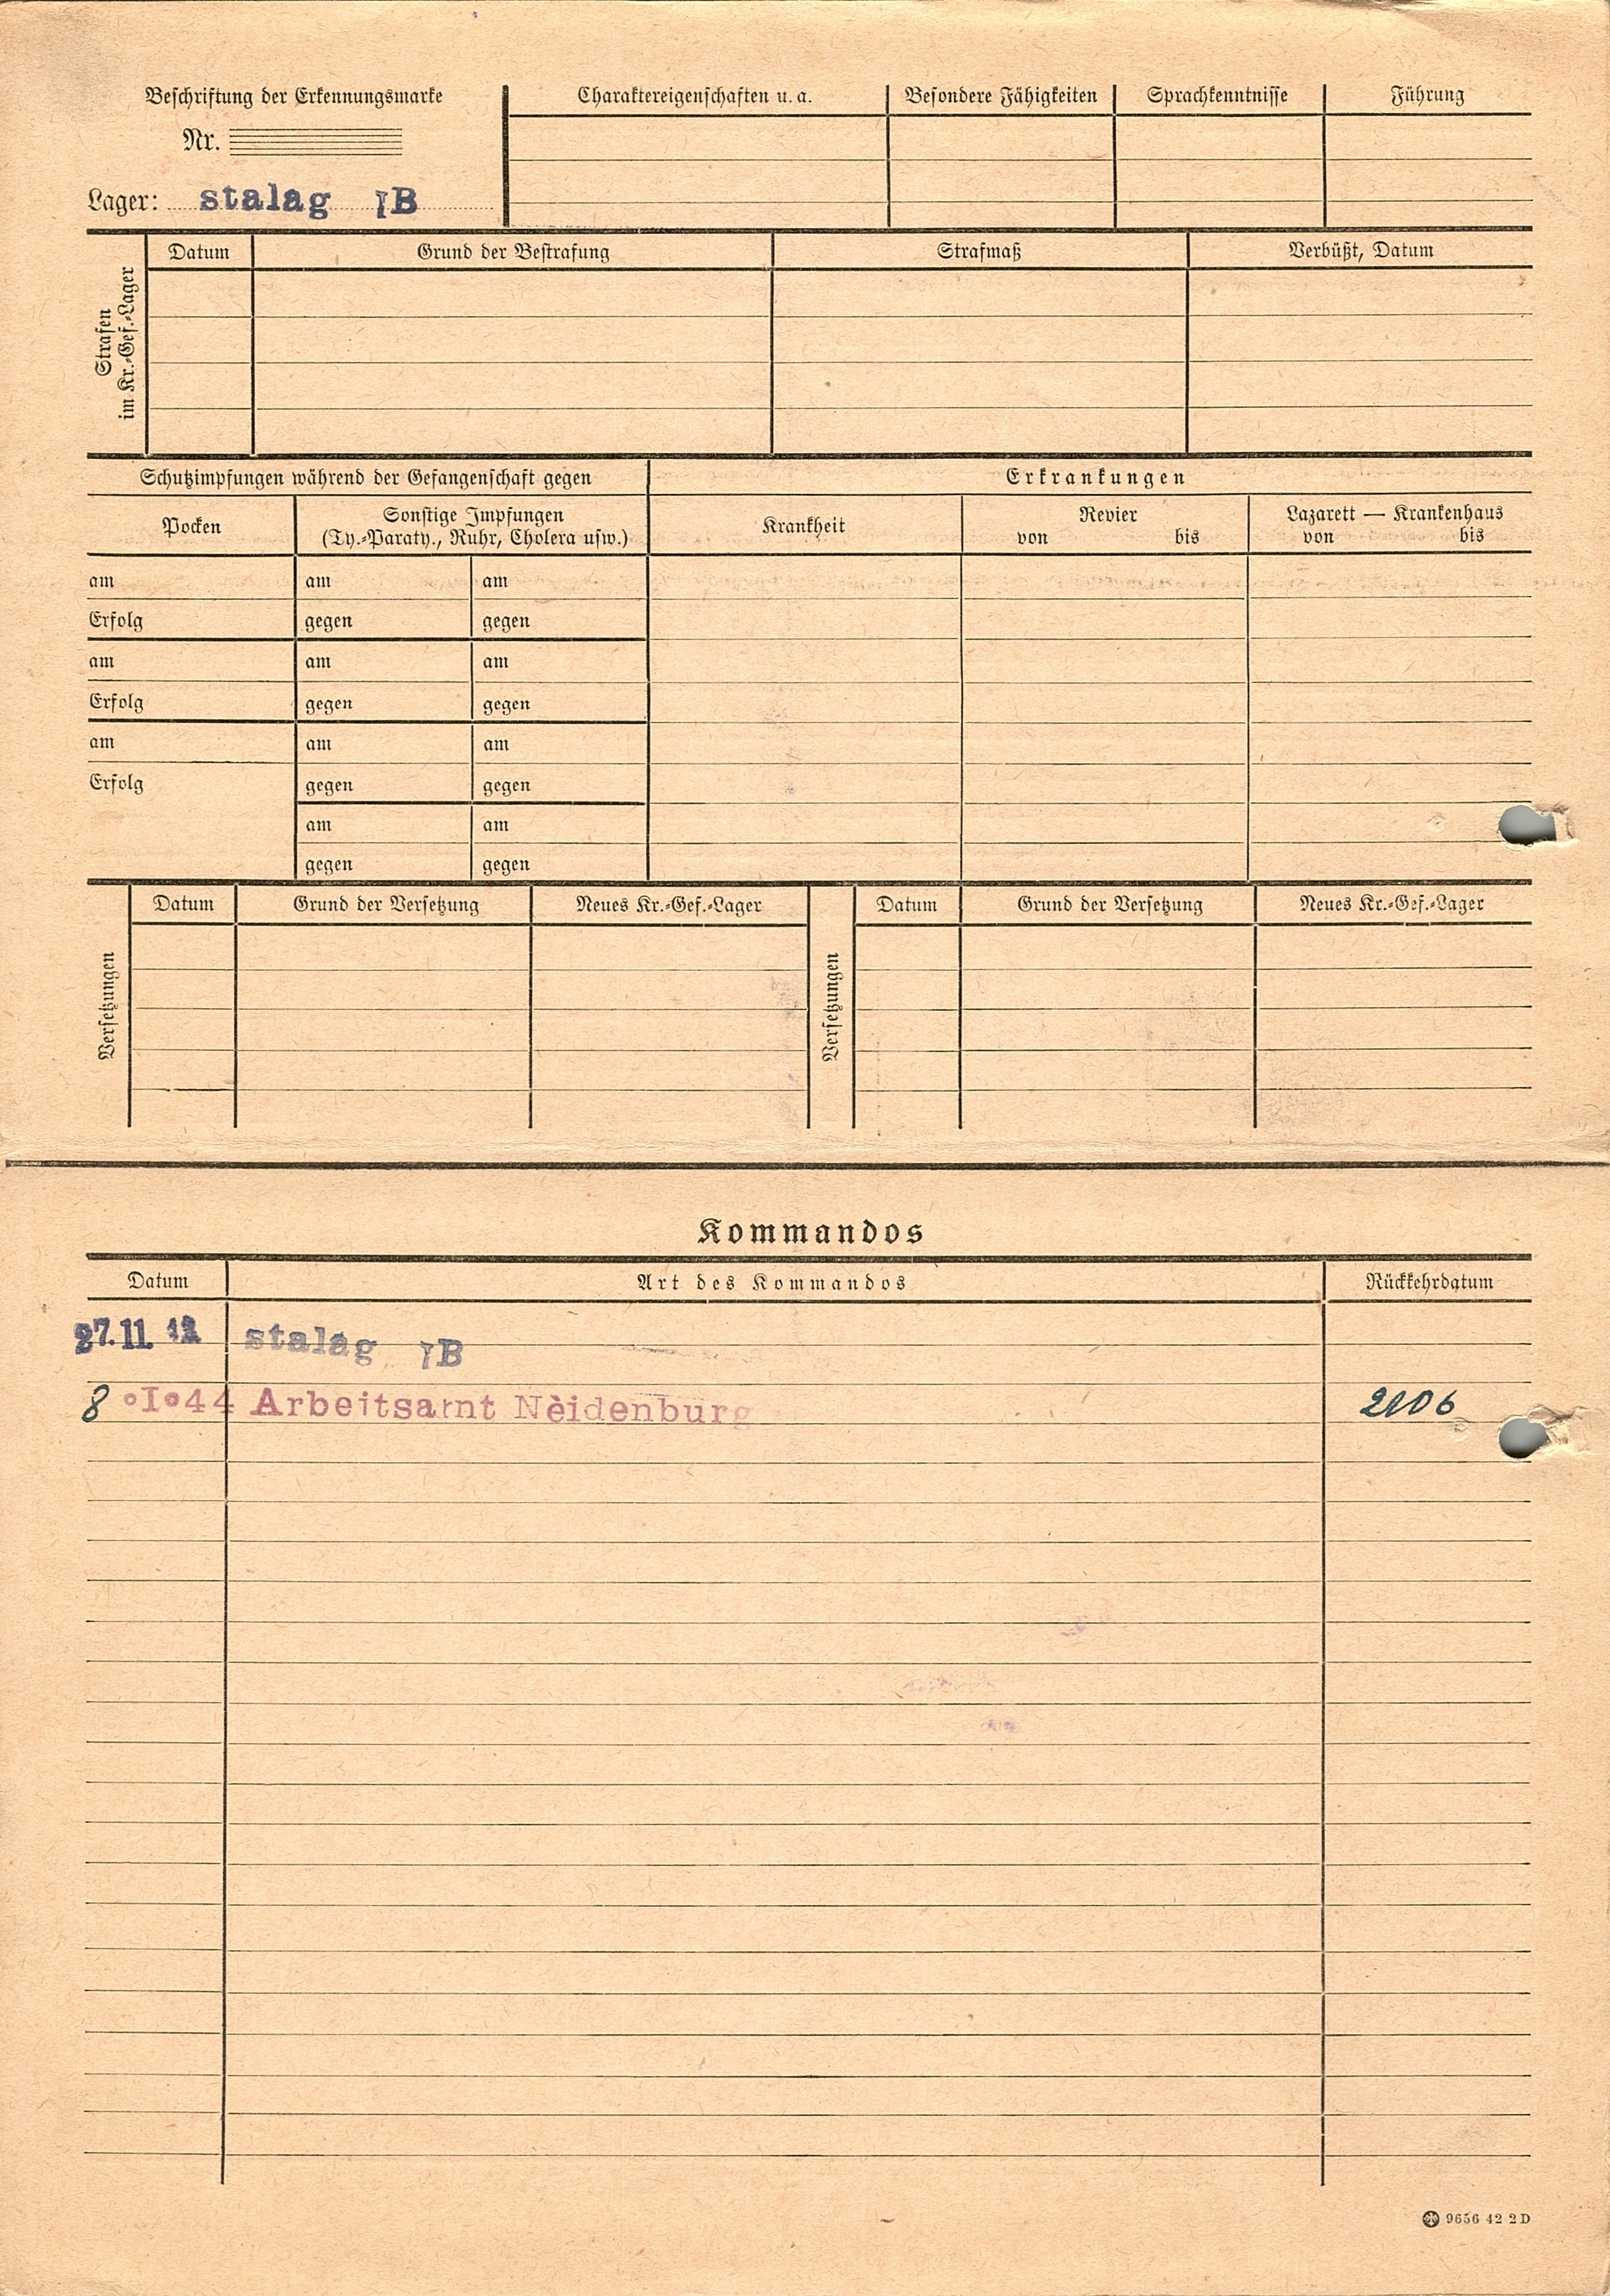 Beschriftung der Erkennungsmarke
Nr.
Lager: stalag IB
Charaktereigenschaften u. a. Besondere Fähigkeiten Sprachkenntnisse Führung
Strafen
im Kr.-Gef.-Lager
Datum Grund der Bestrafung Strafmaß Verbüßt, Datum
Schutzimpfungen während der Gefangenschaft gegen Erkrankungen
Pocken
Sonstige Impfungen
(Ty.-Paraty., Ruhr, Cholera usw.)
Krankheit
Revier
von bis
Lazarett — Krankenhaus
von bis
am am am
Erfolg gegen gegen
am am am
Erfolg gegen gegen
am am am
Erfolg gegen gegen
am am
gegen gegen
Versetzungen
Datum Grund der Versetzung Neues Kr.-Gef.-Lager
Versetzungen
Datum Grund der Versetzung Neues Kr.-Gef.-Lager
Kommandos
Datum Art des Kommandos Rückkehrdatum
27.11. stalag IB
8 .I.44 Arbeitsamt Neidenburg 2106
9656 42 2 D